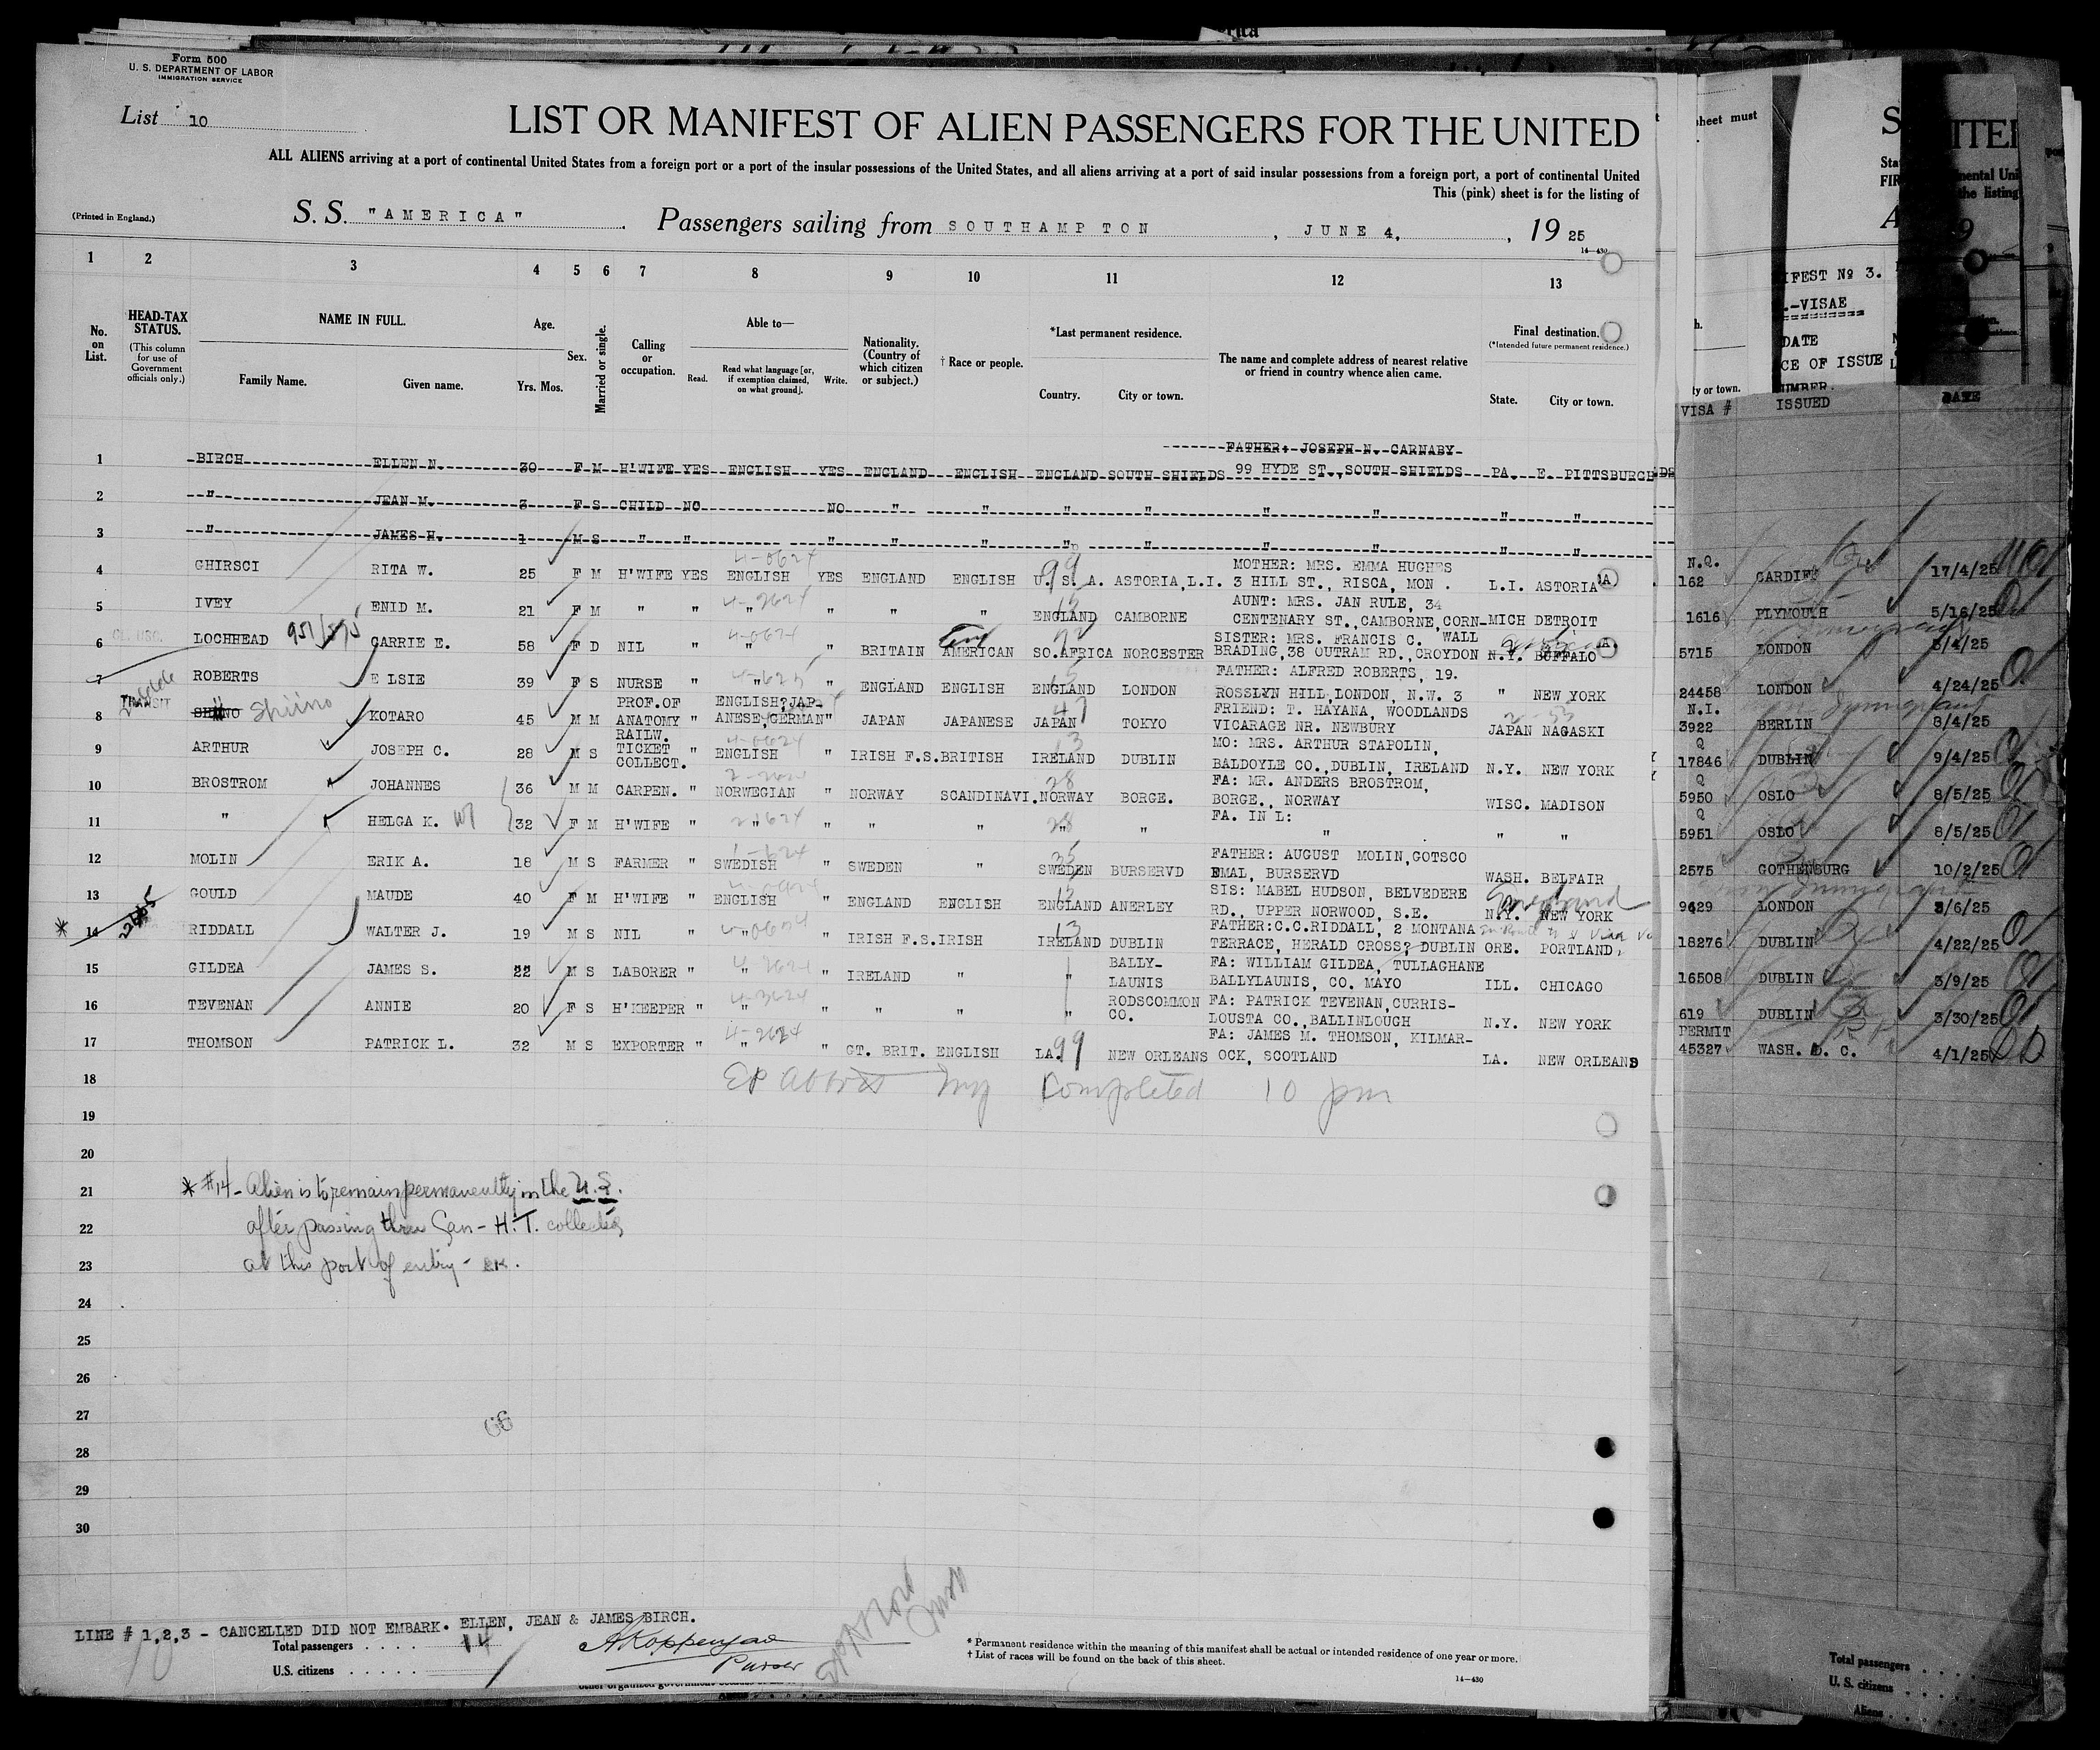 Form 500
U. S. DEPARTMENT OF LABOR
IMMIGRATION SERVICE
List 10
LIST OR MANIFEST OF ALIEN PASSENGERS FOR THE UNITED
ALL ALIENS arriving at a port of continental United States from a foreign port or a port of the insular possessions of the United States, and all aliens arriving at a port of said insular possessions from a foreign port, a port of continental United
This (pink) sheet is for the listing of
(Printed in England.)
S. S. "AMERICA" Passengers sailing from SOUTHAMPTON, JUNE 4, 19 25
14—430
1 2 3 4 5 6 7 8 9 10 11 12 13
No. on List.
HEAD-TAX STATUS.
(This column for use of Government officials only.)
NAME IN FULL.
Family Name. Given name.
Age.
Yrs. Mos.
Sex.
Married or single.
Calling or occupation.
Able to—
Read. Read what language [or, if exemption claimed, on what ground]. Write.
Nationality. (Country of which citizen or subject.)
† Race or people.
*Last permanent residence.
Country. City or town.
The name and complete address of nearest relative or friend in country whence alien came.
Final destination.
(*Intended future permanent residence.)
State. City or town.
FATHER: JOSEPH N. CARNABY
1 BIRCH ELLEN N. 30 F M H'WIFE YES ENGLISH YES ENGLAND ENGLISH ENGLAND SOUTH SHIELDS 99 HYDE ST., SOUTH SHIELDS PA. E. PITTSBURGH
2 " JEAN M. 3 F S CHILD NO NO " " " " " " " "
3 " JAMES H. 1 M S " " " " " " " " " " "
MOTHER: MRS. EMMA HUGHES
4 GHIRSCI RITA W. 25 F M H'WIFE YES ENGLISH YES ENGLAND ENGLISH U. S. A. ASTORIA,L.I. 3 HILL ST., RISCA, MON . L.I. ASTORIA
AUNT: MRS. JAN RULE, 34
5 IVEY ENID M. 21 F M " " " " " " ENGLAND CAMBORNE CENTENARY ST.,CAMBORNE,CORN- MICH DETROIT
SISTER: MRS. FRANCIS C. WALL
6 LOCHHEAD CARRIE E. 58 F D NIL " " " BRITAIN AMERICAN SO.AFRICA NORCESTER BRADING,38 OUTRAM RD.,CROYDON N.Y. BUFFALO
FATHER: ALFRED ROBERTS, 19.
7 ROBERTS ELSIE 39 F S NURSE " " " ENGLAND ENGLISH ENGLAND LONDON ROSSLYN HILL,LONDON, N.W. 3 " NEW YORK
TRANSIT PROF.OF ENGLISH?JAP- FRIEND: T. HAYANA, WOODLANDS
8 SHINO Shiino KOTARO 45 M M ANATOMY " ANESE,GERMAN" JAPAN JAPANESE JAPAN TOKYO VICARAGE NR. NEWBURY JAPAN NAGASKI
RAILW. MO: MRS. ARTHUR STAPOLIN,
9 ARTHUR JOSEPH C. 28 M S TICKET COLLECT. " ENGLISH " IRISH F.S. BRITISH IRELAND DUBLIN BALDOYLE CO.,DUBLIN, IRELAND N.Y. NEW YORK
FA: MR. ANDERS BROSTROM,
10 BROSTROM JOHANNES 36 M M CARPEN. " NORWEGIAN " NORWAY SCANDINAVI. NORWAY BORGE. BORGE., NORWAY WISC. MADISON
FA. IN L:
11 " HELGA K. 32 F M H'WIFE " " " " " " " " " "
FATHER: AUGUST MOLIN,GOTSCO
12 MOLIN ERIK A. 18 M S FARMER " SWEDISH " SWEDEN " SWEDEN BURSERVD EMAL, BURSERVD WASH. BELFAIR
SIS: MABEL HUDSON, BELVEDERE
13 GOULD MAUDE 40 F M H'WIFE " ENGLISH " ENGLAND ENGLISH ENGLAND ANERLEY RD., UPPER NORWOOD, S.E. N.Y. NEW YORK
FATHER:C.C.RIDDALL, 2 MONTANA
* 14 RIDDALL WALTER J. 19 M S NIL " " " IRISH F.S. IRISH IRELAND DUBLIN TERRACE, HERALD CROSS? DUBLIN ORE. PORTLAND,
BALLY- FA: WILLIAM GILDEA, TULLAGHANE
15 GILDEA JAMES S. 22 M S LABORER " " " IRELAND " " LAUNIS BALLYLAUNIS, CO. MAYO ILL. CHICAGO
RODSCOMMON FA: PATRICK TEVENAN,CURRIS-
16 TEVENAN ANNIE 20 F S H'KEEPER " " " " " " CO. LOUSTA CO.,BALLINLOUGH N.Y. NEW YORK
FA: JAMES M. THOMSON, KILMAR-
17 THOMSON PATRICK L. 32 M S EXPORTER " " " GT. BRIT. ENGLISH LA. NEW ORLEANS OCK, SCOTLAND LA. NEW ORLEANS
18 Completed 10 pm
19
20
21 * #14 - Alien is to remain permanently in the U.S.
22 after passing thru Can - H.T. collected
23 at this port of entry - OK.
24
25
26
27
66
28
29
30
LINE # 1,2,3 - CANCELLED DID NOT EMBARK. ELLEN, JEAN & JAMES BIRCH.
Total passengers . . . . . 14
U.S. citizens . . . . .
Purser
* Permanent residence within the meaning of this manifest shall be actual or intended residence of one year or more.
† List of races will be found on the back of this sheet.
14—430
sheet must
IFEST Nº 3.
.-VISAE
DATE
CE OF ISSUE
UMBER.
ty or town.
VISA # ISSUED DATE
N.Q.
162 CARDIFF 17/4/25
1616 PLYMOUTH 5/16/25
5715 LONDON 8/4/25
24458 LONDON 4/24/25
N.I.
3922 BERLIN 8/4/25
Q
17846 DUBLIN 9/4/25
Q
5950 OSLO 8/5/25
Q
5951 OSLO 8/5/25
2575 GOTHENBURG 10/2/25
9629 LONDON 3/6/25
18276 DUBLIN 4/22/25
16508 DUBLIN 3/9/25
619 DUBLIN 3/30/25
PERMIT
45327 WASH. D. C. 4/1/25
Total passengers . . . .
U. S. citizens . . . . .
Aliens . . . . .